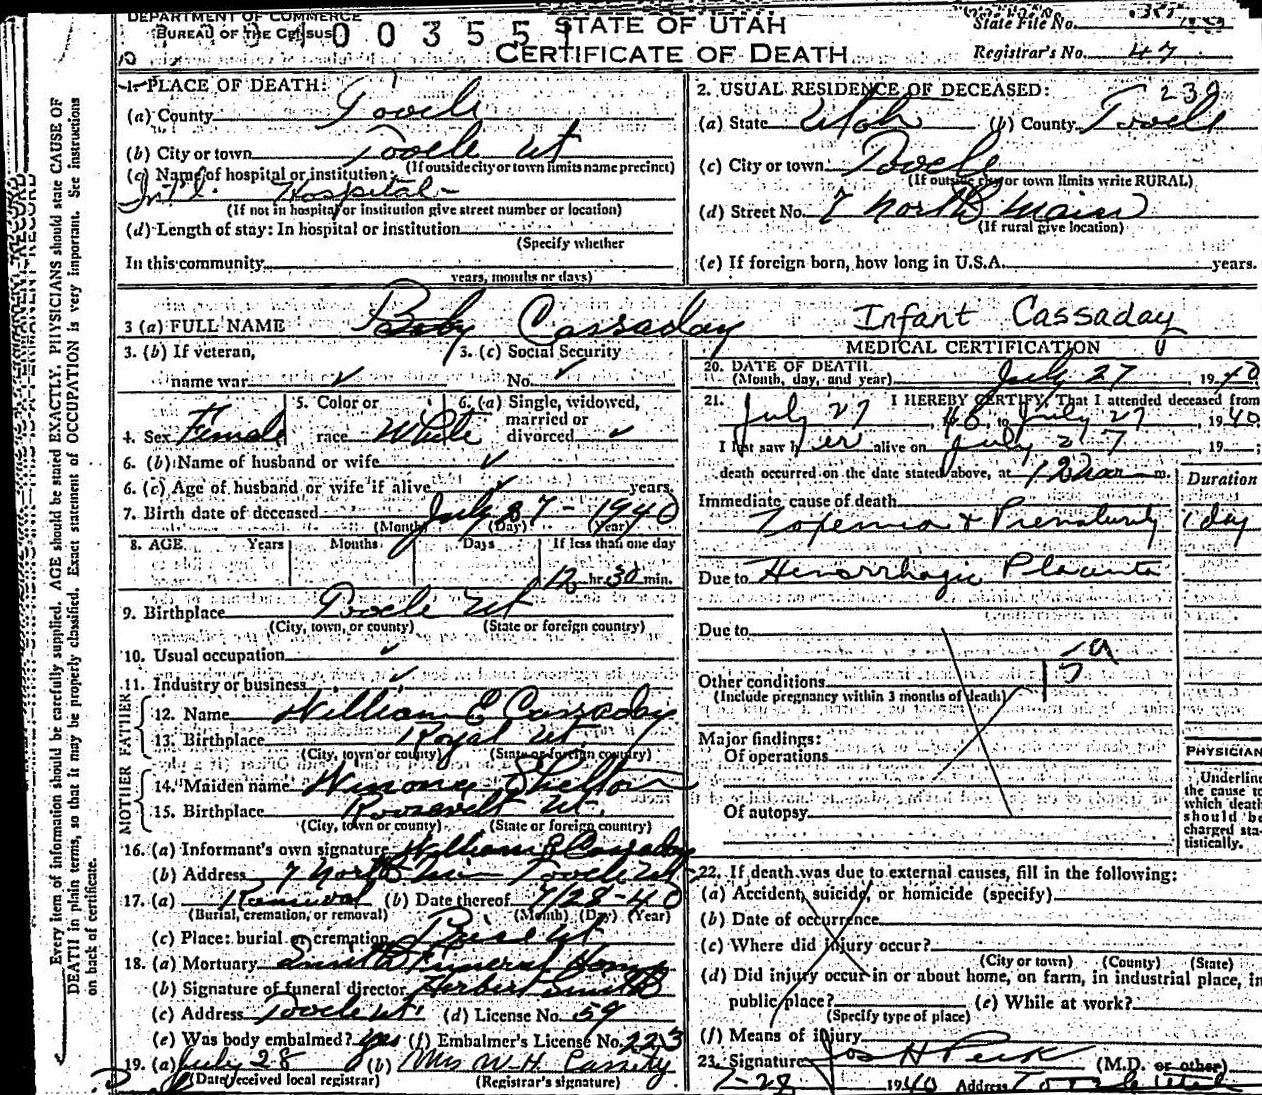 DEPARTMENT OF COMMERCE
BUREAU OF THE CENSUS
00355
STATE OF UTAH
CERTIFICATE OF DEATH
State File No.
Registrar's No. 47
1. PLACE OF DEATH:
(a) County Tooele
(b) City or town Tooele Ut
(If outside city or town limits name precinct)
(c) Name of hospital or institution:
Hospital
(If not in hospital or institution give street number or location)
(d) Length of stay: In hospital or institution
(Specify whether
In this community
years, months or days)
2. USUAL RESIDENCE OF DECEASED: 239
(a) State Utah (b) County Tooele
(c) City or town Tooele
(If outside city or town limits write RURAL)
(d) Street No. 7 North Main
(If rural give location)
(e) If foreign born, how long in U.S.A. years.
3 (a) FULL NAME Baby Cassaday Infant Cassaday
3. (b) If veteran, name war 3. (c) Social Security No.
4. Sex Female 5. Color or race White 6. (a) Single, widowed, married or divorced
6. (b) Name of husband or wife
6. (c) Age of husband or wife if alive years
7. Birth date of deceased July 27 - 1940
(Month) (Day) (Year)
8. AGE Years Months Days If less than one day
12 hr. 30 min.
9. Birthplace Tooele Ut
(City, town, or county) (State or foreign country)
10. Usual occupation
11. Industry or business
FATHER
12. Name William E Cassaday
13. Birthplace Royal Ut.
(City, town or county) (State or foreign country)
MOTHER
14. Maiden name Winona Shelton
15. Birthplace Roosevelt Ut.
(City, town or county) (State or foreign country)
16. (a) Informant's own signature William E Cassaday
(b) Address 7 North Main Tooele Ut
17. (a) Removal (b) Date thereof 7/28-40
(Burial, cremation, or removal) (Month) (Day) (Year)
(c) Place: burial or cremation Price Ut
18. (a) Mortuary Smith Funeral Home
(b) Signature of funeral director Herbert Smith
(c) Address Tooele Ut. (d) License No. 59
(e) Was body embalmed? Yes (f) Embalmer's License No. 223
19. (a) July 28 (b) Mrs W. H. Cassity
(Date received local registrar) (Registrar's signature)
MEDICAL CERTIFICATION
20. DATE OF DEATH
(Month, day, and year) July 27, 1940
21. I HEREBY CERTIFY, That I attended deceased from
July 27, 40, to July 27, 1940
I last saw her alive on July 27, 19 ;
death occurred on the date stated above, at m. Duration
Immediate cause of death
Toxemia + Prematurity 1 day
Due to Hemorrhagic Placenta
Due to
Other conditions
(Include pregnancy within 3 months of death)
Major findings:
Of operations
Of autopsy
PHYSICIAN
Underline
the cause to
which death
should be
charged sta-
tistically.
22. If death was due to external causes, fill in the following:
(a) Accident, suicide, or homicide (specify)
(b) Date of occurrence
(c) Where did injury occur?
(City or town) (County) (State)
(d) Did injury occur in or about home, on farm, in industrial place, in
public place? (e) While at work?
(Specify type of place)
(f) Means of injury
23. Signature Jos H Peck (M.D. or other)
7-28 1940 Address Tooele Utah
Every item of information should be carefully supplied. AGE should be stated EXACTLY. PHYSICIANS should state CAUSE OF
DEATH in plain terms, so that it may be properly classified. Exact statement of OCCUPATION is very important. See instructions
on back of certificate.